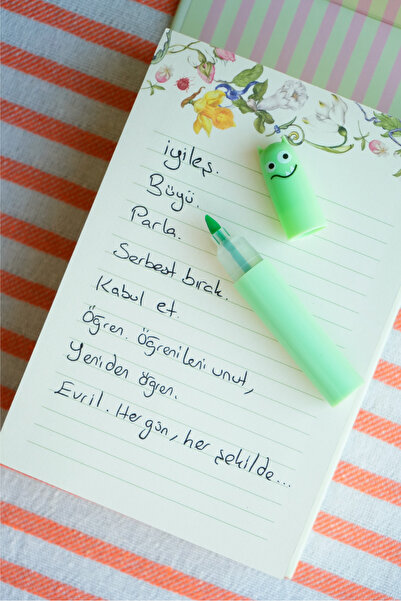 iyileş.
Büyü.
Parla.
Serbest bırak.
Kabul et.
Öğren. Öğrenileni unut,
Yeniden öğren.
Evril. Her gün, her şekilde...